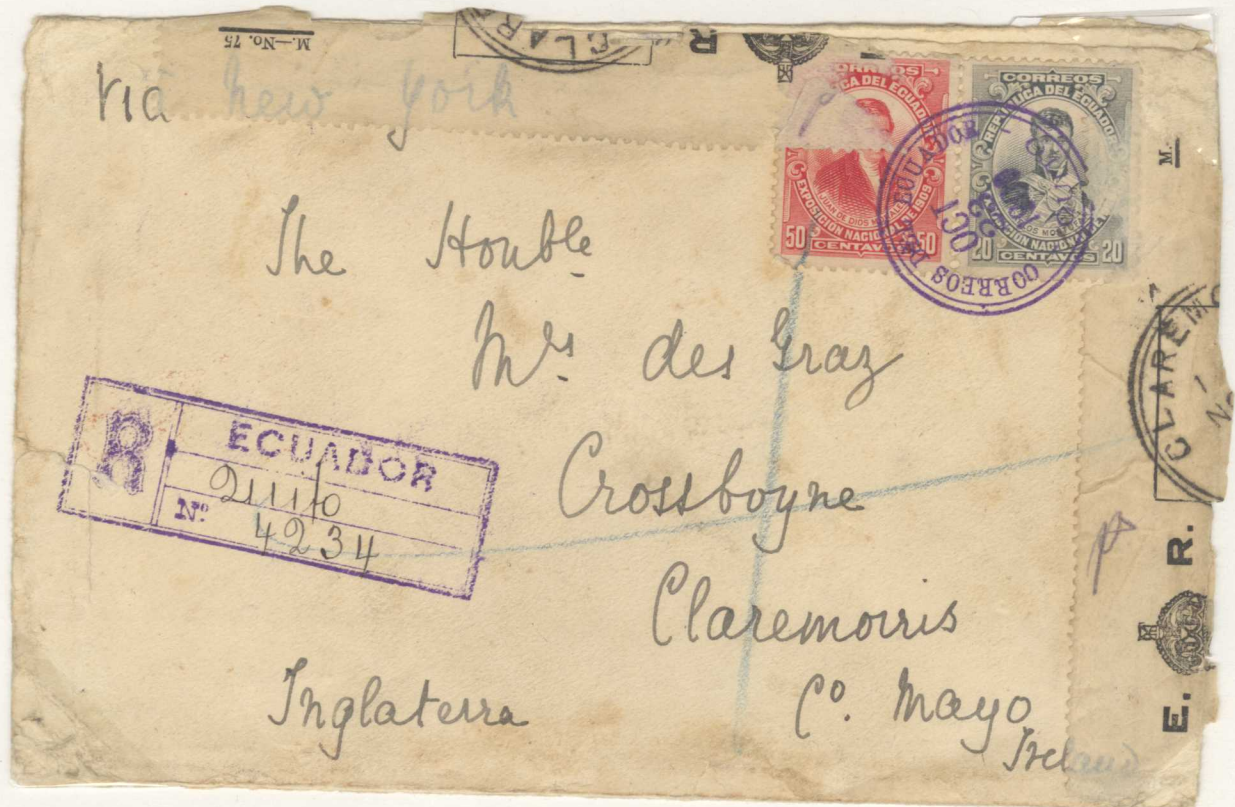 M.—No. 75
CLAR
R
Via New York
CORREOS
ICA DEL ECUADOR
JUAN DE DIOS MORALES
EXPOSICION NACIONAL DE 1909
50 CENTAVOS 50
CORREOS
REPUBLICA DEL ECUADOR
20 CENTAVOS 20
CORREOS DEL ECUADOR
OCT
M.
The Honble
Mrs. des Graz
Crossboyne
Claremorris
Co. Mayo
Ireland
Inglaterra
R
ECUADOR
Quito
No. 4234
CLAREMO
1
NO
E. R.